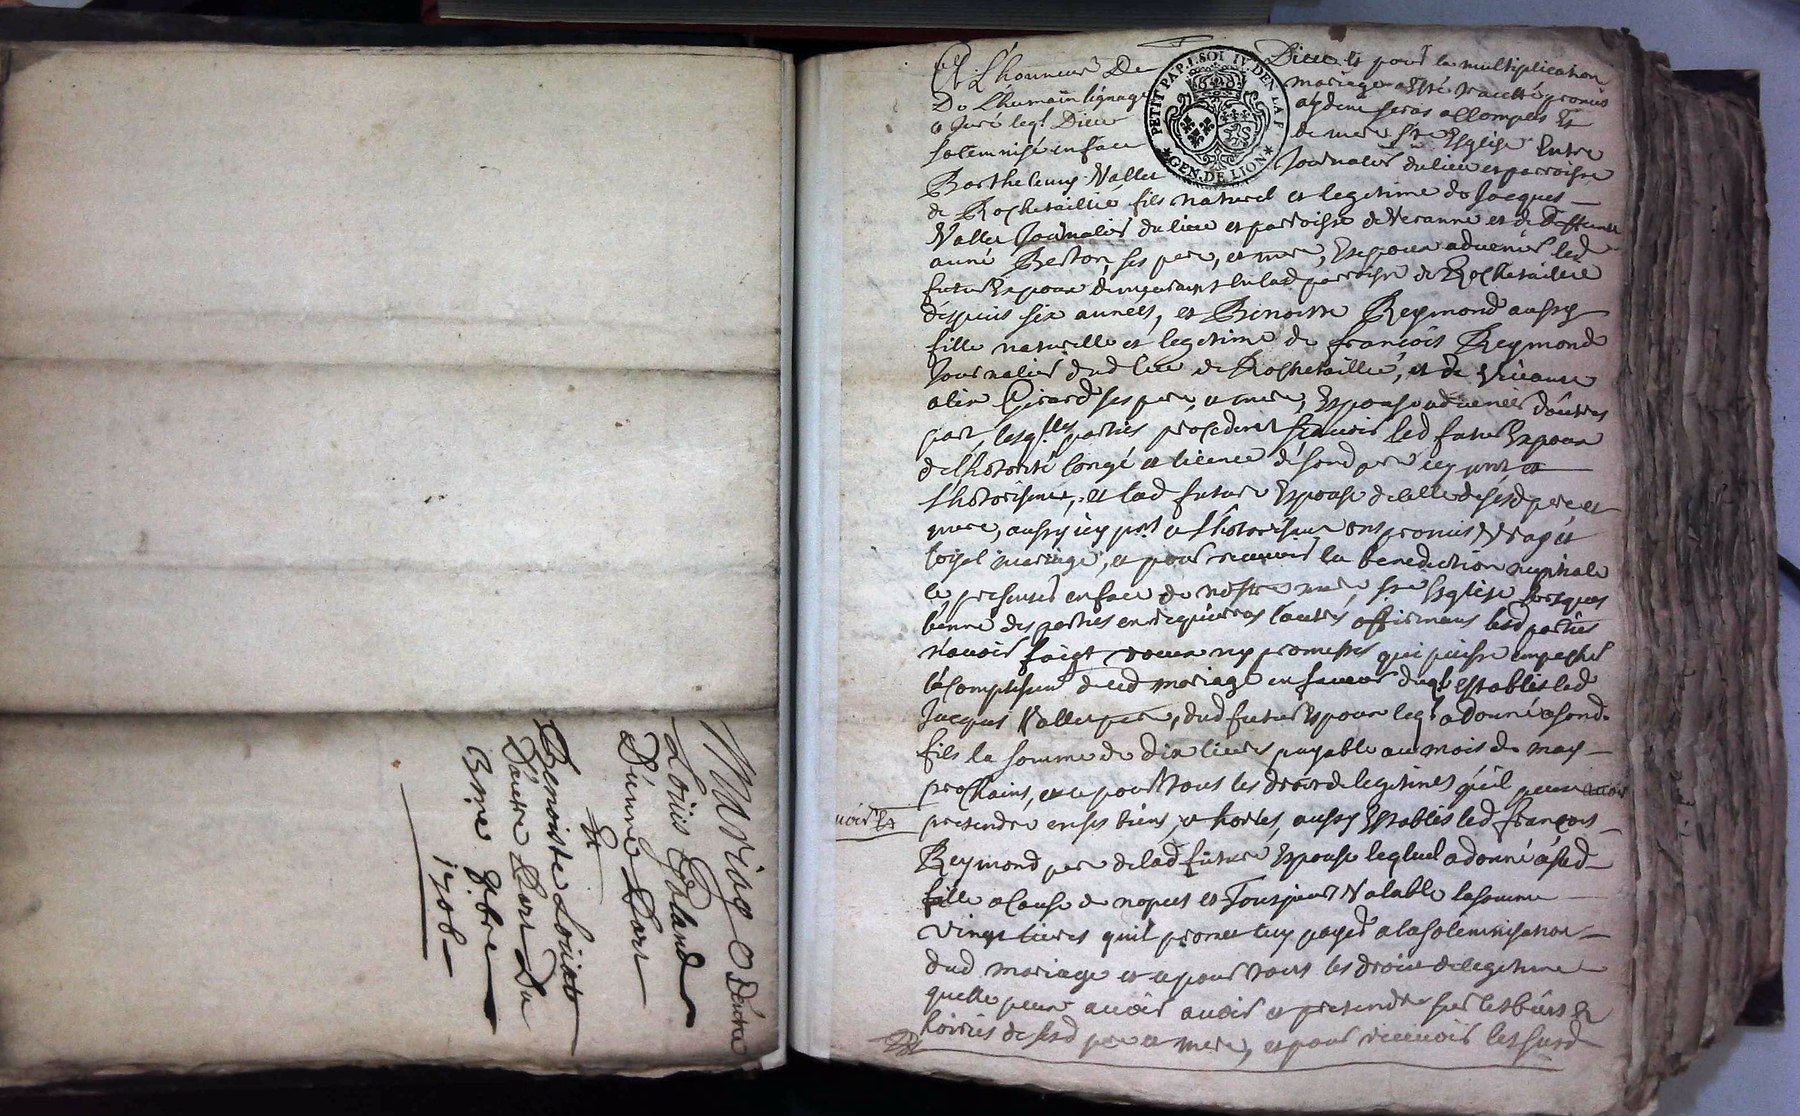 Mariage Dentre
Louis Galand
D'unne Part
Et
Benoiste
D'autre Part Du
8bre
1708
PETIT PAP. 1. SOL IV. DEN LA F
GEN. DE LION
A L'honneur De Dieu et pour la multiplication
De L'humain lignage mariage a esté traicté promis
a Juré legt Dieu aydant seras
solemnisé en face de mere Ste Esglise Entre
Barthelemy Vallet Journalier du lieu et parroisse
de Rochetaillié fils naturel et legitime de Jacques
Vallet Journalier du lieu et parroisse de Veranne et de deffunte
Berton ses pere, et mere, Espoux advenir led
futur Espoux demeurant en lad parroisse de Rochetaillié
despuis six années, et Benoitte Reymond aussy
fille naturelle et legitime de francois Reymond
Journalier dud lieu de Rochetaillié, et de
Girard ses pere, et mere, Espouse advenir d'autres
part, lesqlles parties procedant scavoir led futur Espoux
de l'hotorité congé et licence de sond pere icy pnt et
l'hotorisant, et lad future Espouse de celle de sesd pere et
mere, aussy icy pnt et l'hotorisant ont promis vray et
loyal mariage, et pour recevoir la benediction nuptiale
se presenter en face de nostre mere Ste Esglise lorsques
l'unne des parties en requierras l'autres affirmant lesd parties
n'avoir faict voeux ny promesses qui puisse empescher
l'acomplissement dud mariage en faveur duql establis led
Jacques Vallet pere, dud futur Espoux leql a donné a sond
fils la somme de dix livres payable au mois de may
prochains, et ce pour tous les droit de legitimes qu'il peut avoir
voir et
pretendre en ses biens, et hoiries, aussy Establis led francois
Reymond pere de lad future Espouse lequel a donné a sad
fille a cause de nopces et Tousjours Valable la somme
vingt livres quil promet luy payer a la solemnisation
dud mariage et ce pour tous les droit de legitime
quelle peut avoir avoir et pretendre sur les biens et
hoiries de sesd pere et mere, et pour recevoir lessusd